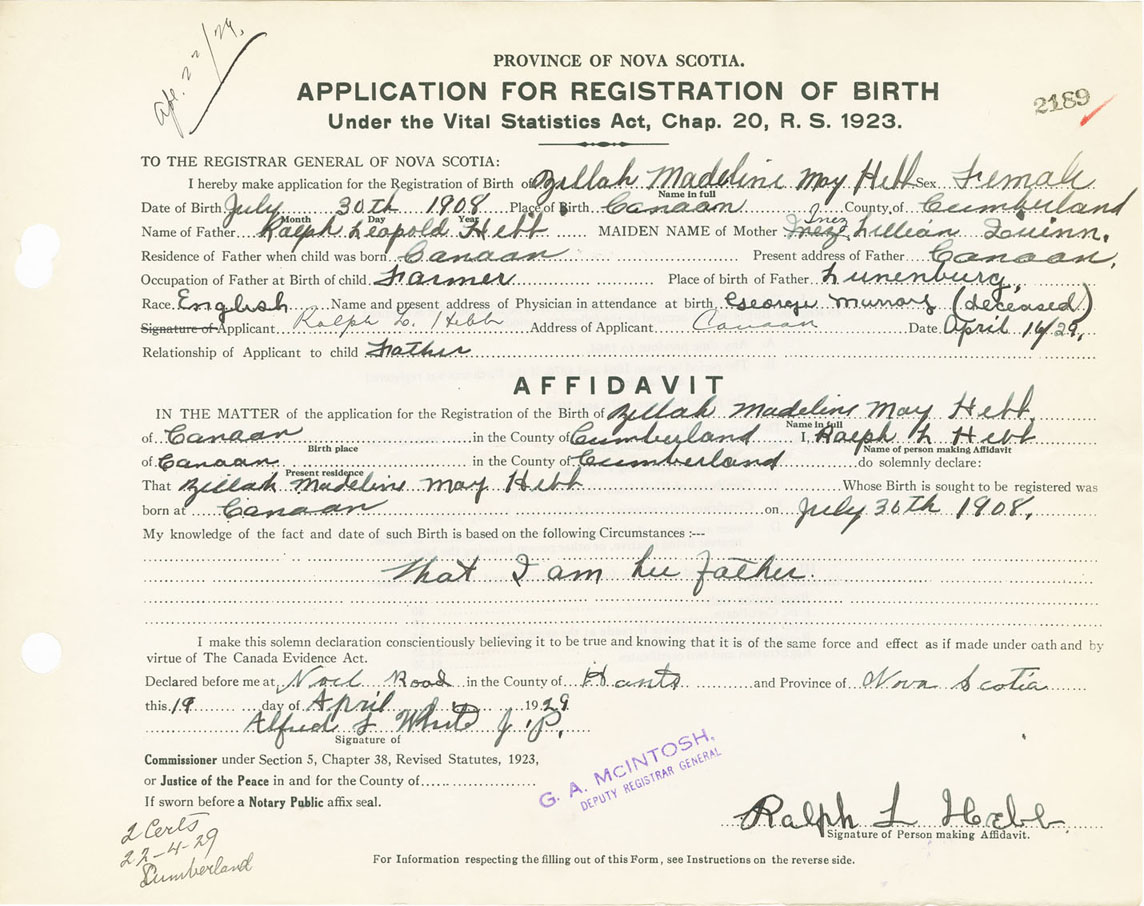 Apr. 22/29.
PROVINCE OF NOVA SCOTIA.
APPLICATION FOR REGISTRATION OF BIRTH
2189
Under the Vital Statistics Act, Chap. 20, R. S. 1923.
TO THE REGISTRAR GENERAL OF NOVA SCOTIA:
I hereby make application for the Registration of Birth of Zillah Madeline May Hebb Sex Female
Name in full
Date of Birth July 30th 1908 Place of Birth Canaan County of Cumberland
Month Day Year
Inez
Name of Father Ralph Leopold Hebb MAIDEN NAME of Mother Inez Lillian Quinn.
Residence of Father when child was born Canaan Present address of Father Canaan,
Occupation of Father at Birth of child Farmer Place of birth of Father Lunenburg,
Race English Name and present address of Physician in attendance at birth George Murray (deceased)
Signature of Applicant Ralph L. Hebb Address of Applicant Canaan Date April 16/29,
Relationship of Applicant to child Father
AFFIDAVIT
IN THE MATTER of the application for the Registration of the Birth of Zillah Madeline May Hebb
Name in full
of Canaan in the County of Cumberland I, Ralph L Hebb
Birth place Name of person making Affidavit
of Canaan in the County of Cumberland do solemnly declare:
Present residence
That Zillah Madeline May Hebb Whose Birth is sought to be registered was
born at Canaan on July 30th 1908,
My knowledge of the fact and date of such Birth is based on the following Circumstances :---
That I am her father.
I make this solemn declaration conscientiously believing it to be true and knowing that it is of the same force and effect as if made under oath and by
virtue of The Canada Evidence Act.
Declared before me at Noel Road in the County of Hants and Province of Nova Scotia
this 19 day of April 1929
Alfred L White J.P.
Signature of
Commissioner under Section 5, Chapter 38, Revised Statutes, 1923,
or Justice of the Peace in and for the County of
If sworn before a Notary Public affix seal.
G. A. McINTOSH,
DEPUTY REGISTRAR GENERAL
Ralph L Hebb
Signature of Person making Affidavit.
2 Certs
22-4-29
Cumberland
For Information respecting the filling out of this Form, see Instructions on the reverse side.